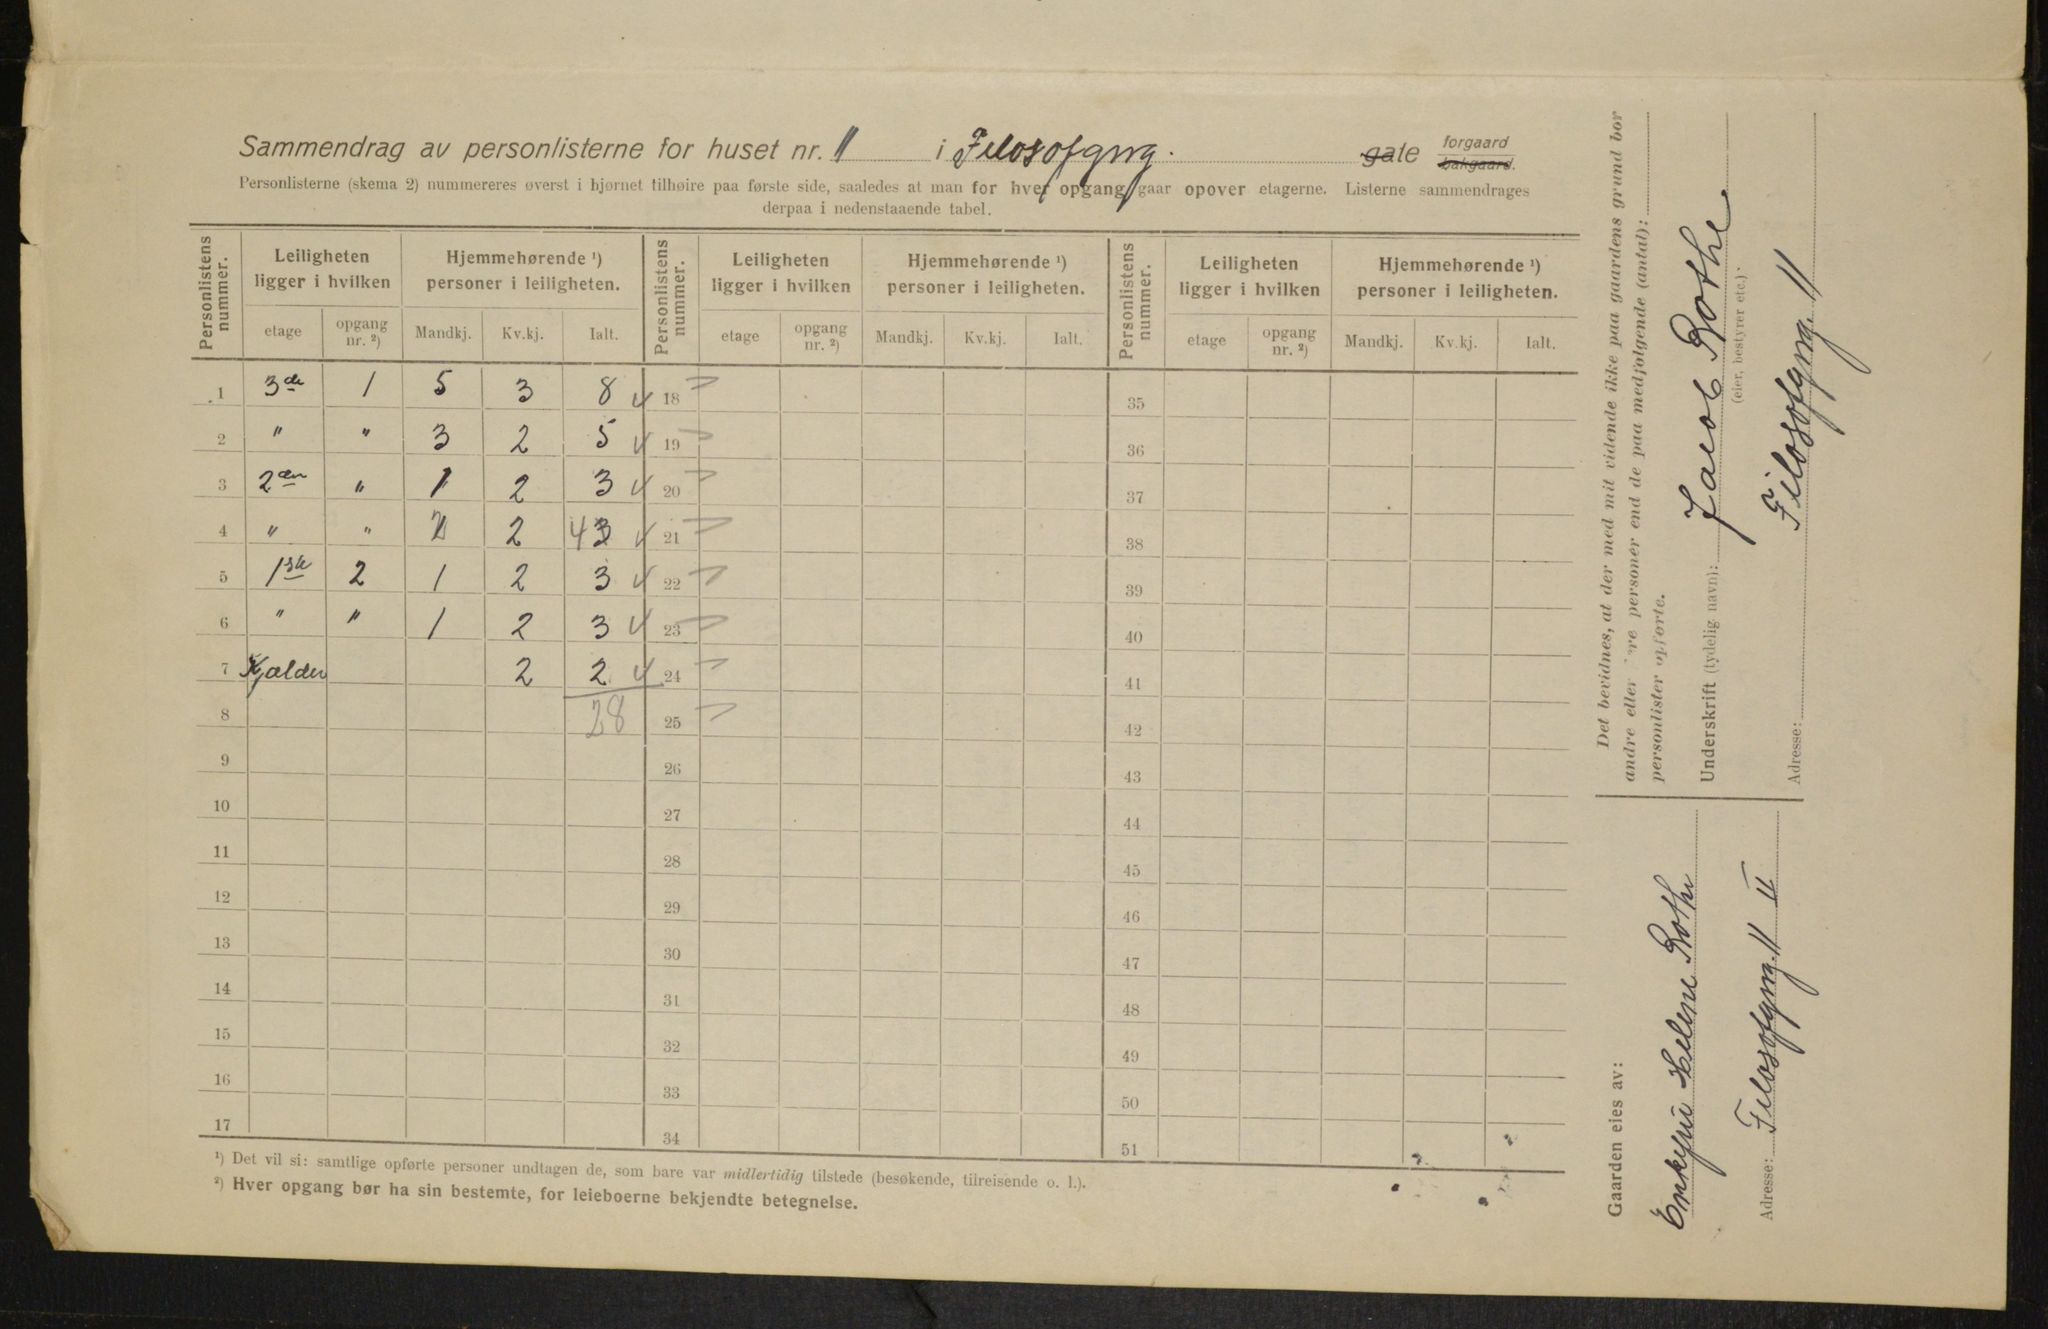 Sammendrag av personlisterne for huset nr. 11 i Filosofgng. gate forgaard bakgaard.
Personlisterne (skema 2) nummereres øverst i hjørnet tilhøire paa første side, saaledes at man for hver opgang gaar opover etagerne. Listerne sammendrages
derpaa i nedenstaaende tabel.
Personlistens nummer. Leiligheten ligger i hvilken Hjemmehørende ¹) personer i leiligheten. Personlistens nummer. Leiligheten ligger i hvilken Hjemmehørende ¹) personer i leiligheten. Personlistens nummer. Leiligheten ligger i hvilken Hjemmehørende ¹) personer i leiligheten.
etage opgang nr. ²) Mandkj. Kv.kj. Ialt. etage opgang nr. ²) Mandkj. Kv.kj. Ialt. etage opgang nr. ²) Mandkj. Kv.kj. Ialt.
1 3de 1 5 3 8 18 35
2 " " 3 2 5 19 36
3 2den " 1 2 3 20 37
4 " " 2 2 4 3 21 38
5 1ste 2 1 2 3 22 39
6 " " 1 2 3 23 40
7 Kjælder 2 2 24 41
8 28 25 42
9 26 43
10 27 44
11 28 45
12 29 46
13 30 47
14 31 48
15 32 49
16 33 50
17 34 51
¹) Det vil si: samtlige opførte personer undtagen de, som bare var midlertidig tilstede (besøkende, tilreisende o. l.).
²) Hver opgang bør ha sin bestemte, for leieboerne bekjendte betegnelse.
Det bevidnes, at der med mit vidende ikke paa gaardens grund bor
andre eller personer end de paa medfølgende (antal):
personlister opførte.
Underskrift (tydelig navn): Jacob Rothe
(eier, bestyrer etc.).
Adresse: Filosofgng. 11
Gaarden eies av:
Enkefru Helene Rothe
Adresse: Filosofgng. 11 II